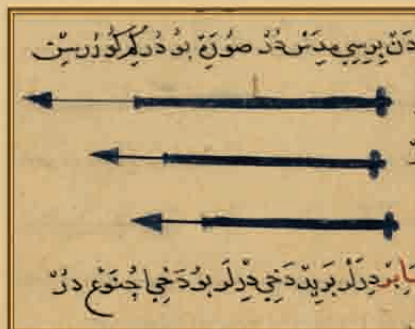 دَنْ بِرِسِي مِدَسْ دُرْ صُورَتِ بُو دُرْ كِمْ كُورُرْسِنْ
دِرْلَرْ بَرِيدْ دَخِي دِرْلَرْ بُو دَخِي اُچ نَوْعْ دُرْ